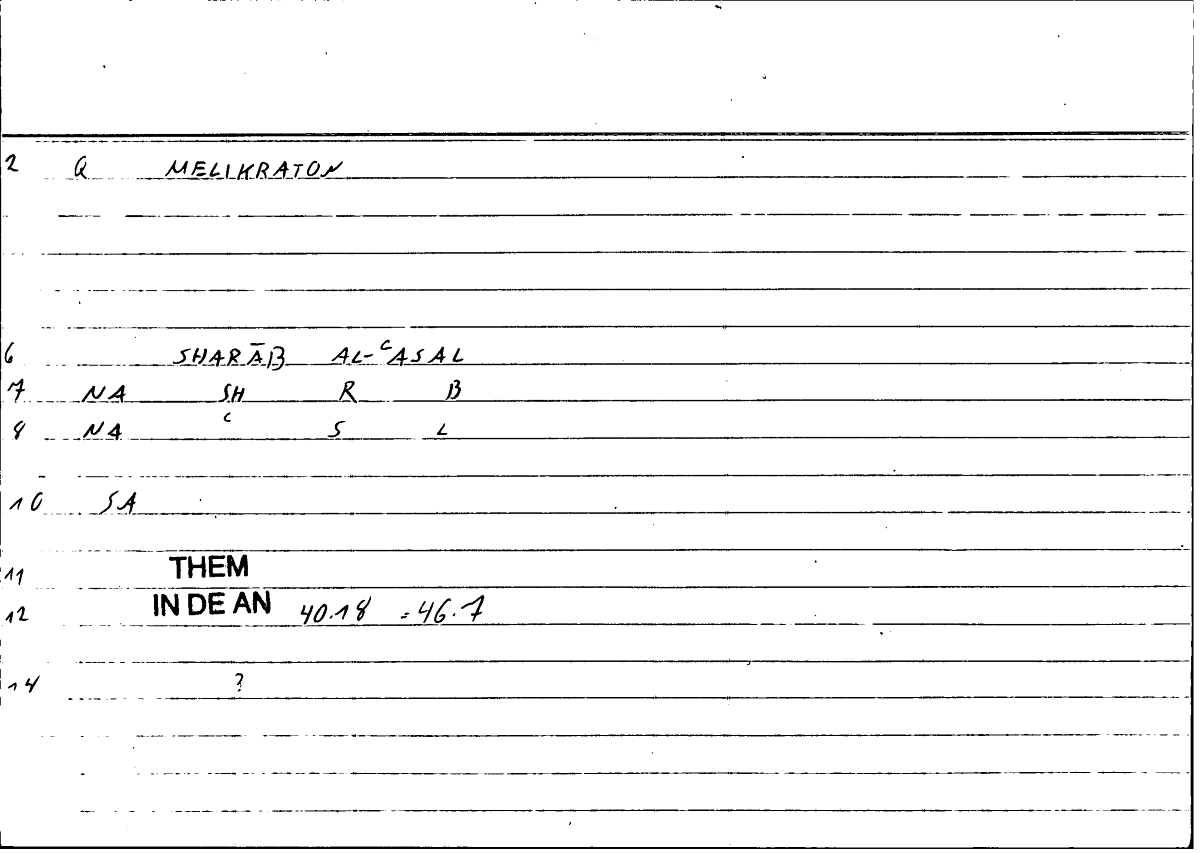 2 Q MELIKRATON
6 SHARĀB AL-ᶜASAL
7 NA SH R B
8 NA ᶜ S L
10 SA
11 THEM
12 IN DE AN 40.18 = 46.7
14 ?